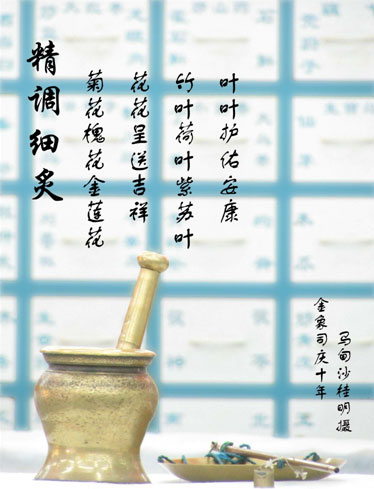 精调细炙
菊花槐花金莲花
花花呈送吉祥
竹叶荷叶紫苏叶
叶叶护佑安康
金象司庆十年
马甸沙桂明摄